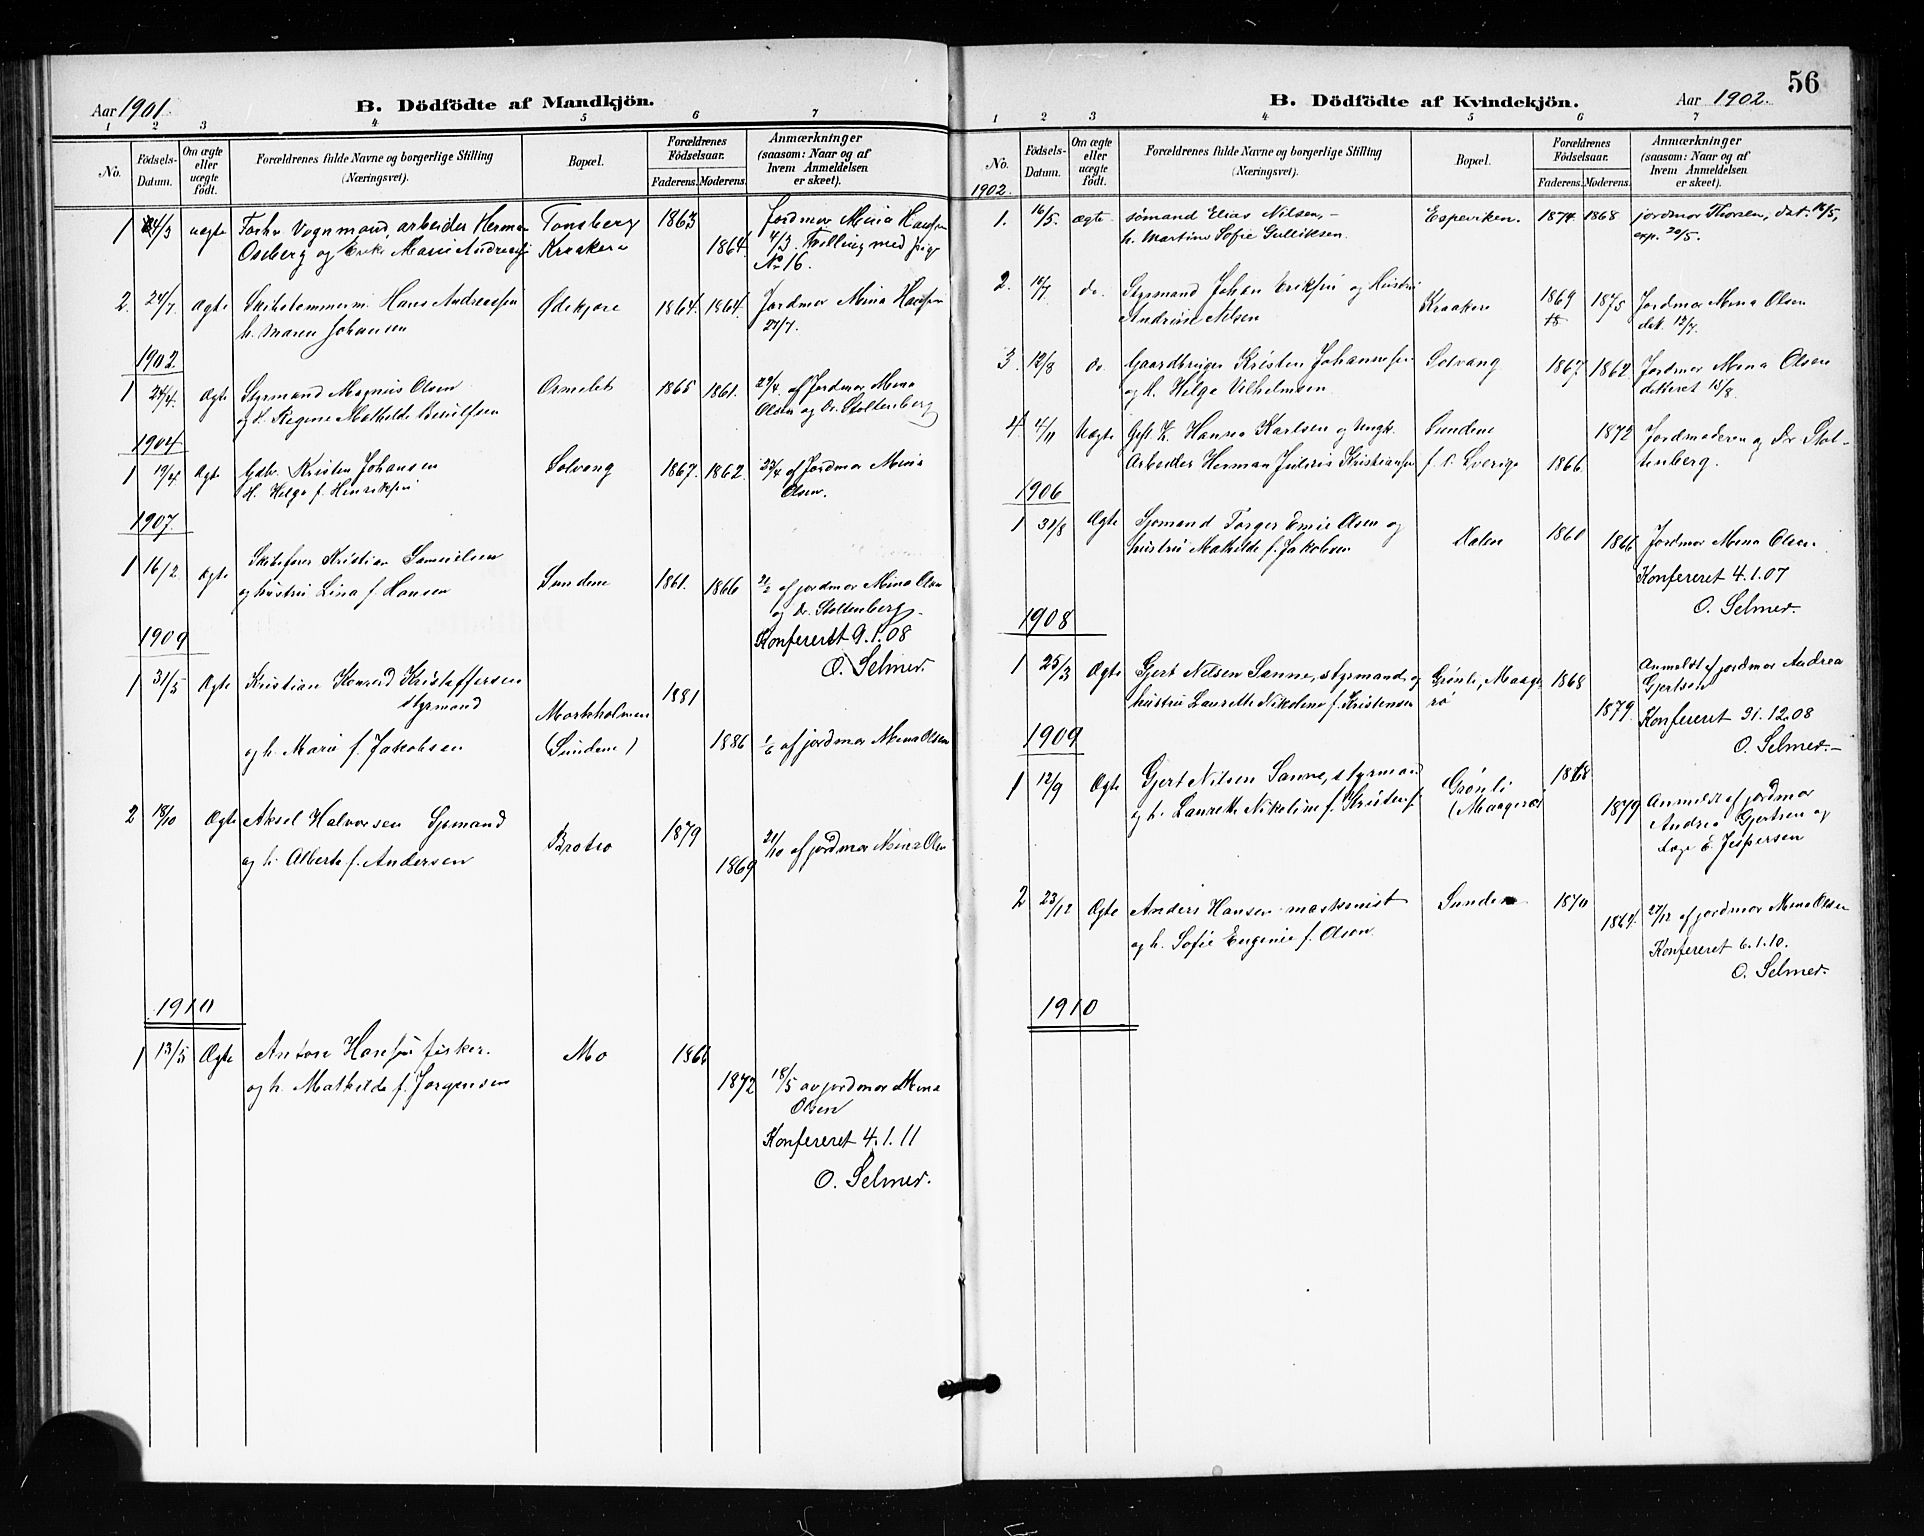 Aar 1901. B. Dödfödte af Mandkjön.
1 2 3 4 5 6 7
No. Födsels-Datum. Om ægte eller uægte födt. Forældrenes fulde Navne og borgerlige Stilling (Næringsvei). Bopæl. Forældrenes Födselsaar. Faderens. Moderens. Anmærkninger (saasom: Naar og af hvem Anmeldelsen er skeet).
1 4/3 uægte Forhv. Vognmand, arbeider Herman Tønsberg 1863 Jordmor Mina Hansen
Oseberg og Marie Andreas Kraakere 1864. 4/3. Tvilling med pige
No 16.
2. 24/7 Ægte Skibstømmerm. Hans Andreassen Ødekjære 1864. 1864. Jordmor Mina Hansen
h. Maren Johansen 27/7.
1902.
1 24/4. Ægte Styrmand Magnus Olsen Ormelet 1865 1861. 29/4. af Jordmor Mina
og h. Regine Mathilde Berulfsen Olsen og Dr. Stoltenberg
1904
1 19/4 Ægte Gdbr. Kristen Johansen Solvang 1867. 1862. 23/4 af Jordmor Mina
H. Helga f. Henriksen Olsen.
1907.
1 16/2 Ægte Skibsfører Kristian Samuelsen
og hustru Lina f. Hansen Sundene 1861. 1866 21/2 af jordmor Mina Olsen
og Dr. Stoltenberg.
1909 Konfereret 9.1.08
O. Selmer.
1 31/5 Ægte Kristian Konrad Kristoffersen 1881
styrmand Morkholmen
og h. Marie f. Jakobsen (Sundene) 1886 1/6 af jordmor Mina Olsen
2 18/10 Ægte Aksel Halvorsen Sjømand 1879
og h. Alberte f. Andersen Bratro 1869 21/10 af jordmor Mina Olsen
1910
1 13/5 Ægte Anton Hansen fisker. Mo 1866
og h. Mathilde f. Jørgensen 1872 18/5 av jordmor Mina
Olsen
Konfereret 4.1.11
O. Selmer.
56
B. Dödfödte af Kvindekjön. Aar 1902.
1 2 3 4 5 6 7
No. Födsels-Datum. Om ægte eller uægte födt. Forældrenes fulde Navne og borgerlige Stilling (Næringsvei). Bopæl. Forældrenes Födselsaar. Faderens. Moderens. Anmærkninger (saasom: Naar og af hvem Anmeldelsen er skeet).
1902.
1. 16/5. ægte sømand Elias Nilsen, - Espeviken. 1874. 1868 jordmor Thorsen, dat. 16/5,
h. Martine Sofie Gulliksen. exp. 20/5.
2. 12/7 do. Styrmand Johan Eriksen og Hustru Kraakere 1869 1875 Jordmor Mina Olsen
Andrine Nilsen 18 dat. 12/7.
3. 12/8 do. Gaardbruger Kristen Johannesen Solvang 1867. 1862 Jordmor Mina Olsen
og h. Helga Vilhelmsen. datteret 13/8.
4. 4/11 Uægte Gift K. Hansen Karlsen og Ungk. Sundene 1872 Jordmoderen og Dr. Stol-
Arbeider Herman Julius Kristiansen f. i Sverige 1866 tenberg.
1906
1 31/8 Ægte Sjømand Torger Emil Olsen og 1860
hustru Mathilde f. Jakobsen 1866 Jordmor Mina Olsen.
Konfereret 4.1.07
O. Selmer.
1908
1 25/3 Ægte Gjert Nilsen Sanne, styrmand og Grønli, Maage- 1868 Anmeldt af jordmor Andrea
hustru Laurette Nikoline f. Kristensen rø 1879. Gjertsen
Konfereret 31.12.08
O. Selmer. -
1909
1 12/9 Ægte Gjert Nilsen Sanne, styrmand Grønli 1868
og h. Laurette Nikoline f. Kristensen (Maagerø) 1879 Anmeldt af jordmor
Andrea Gjertsen og
E. Jespersen
2 23/12 Ægte Anders Hansen maskinist Sundene 1870
og h. Sofie Eugenie f. Olsen. 1864. 27/12 af jordmor Mina Olsen
Konfereret 6.1.10.
O. Selmer.
1910